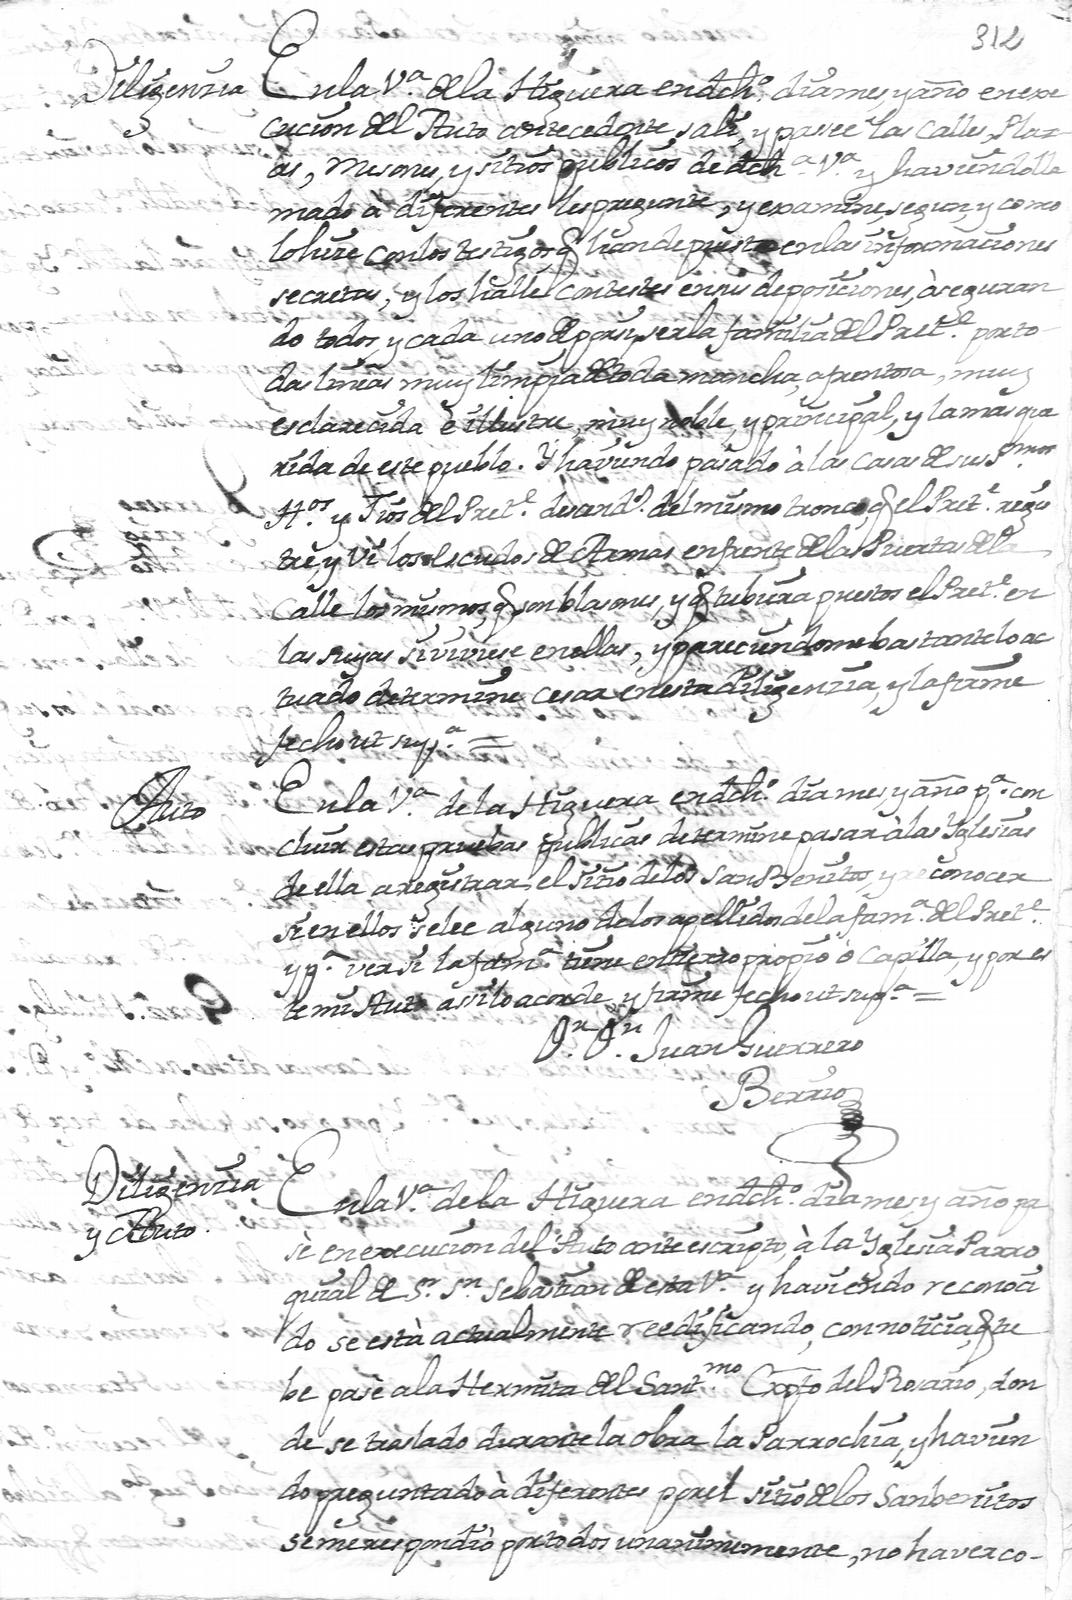 312
Diligenzia
En la V.ª de la Higuera en dch.º dia mes y año en exe
cucion del Auto antecedente sali, y pasee las calles, Plaz-
as, Mesones, y sitios publicos de dch.ª V.ª y haviendo lla
mado à diferentes les pregunte, y examine, segun, y como
lo hize con los testigos q han depuesto en las informaciones
secretas, y los hallè contestes en sus deposiciones, àseguran
do todos, y cada uno de por si ser la familia del Pret.e por to
das lineas muy limpia de toda mancha, afrentosa, muy
esclarecida è illustre, muy noble, y principal, y la mas que
rida de este pueblo. Y haviendo pasado à las casas de sus P.mos
H.os y Tios del Pret.e decend.s del mismo tronco, q el Pret.e regis
trè, y Vi los escudos de Armas en frente de las Puertas de la
calle los mismos, q son blasones, y q tubiera puestos el Pret.e en
las suyas si viviese en ellas, y pareciendome bastante lo ac
tuado determine cesar en esta diligenzia, y la firme
fecho ut sup.ª =
Auto
En la V.ª de la Higuera en dch.º dia mes, y año p.ª con
cluir estas pruebas publicas determine pasar à las Yglesias
de ella a registrar el sitio de los San Benitos, y reconocer
si en ellos se lee alguno de los apellidos de la fam.ª del Pret.e
y p.ª ver si la fam.ª tiene entierro propio ò Capilla, y por es
te mi Auto assi lo acorde, y firme fecho ut sup.ª =
Juan Guerrero
Berrio
Diligenzia
y Auto.
En la V.ª de la Higuera en dch.º dia mes y año pa
sè en execucion del Auto ante escripto, à la Yglesia Parro
quial de S.r S.n Sebastian de esta V.ª y haviendo reconoci
do se està actualmente reedificando, con noticia, q tu
be pasè a la Hermita del Sant.mo Cxpto del Rosario, don
de se traslado durante la obra la Parrochia, y havien
do preguntado à diferentes por el sitio de los Sanbenitos
se me respondiò por todos unanimemente, no haver co-